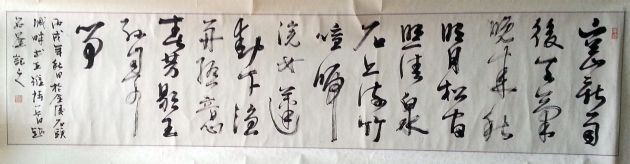 空山新雨
後天氣
晚來秋
明月松間
照清泉
石上流竹
喧歸
浣女蓮
動下漁
舟隨意
春芳歇王
孫自可
留
丙戌年秋日於金陵石頭
城畔書王維詩